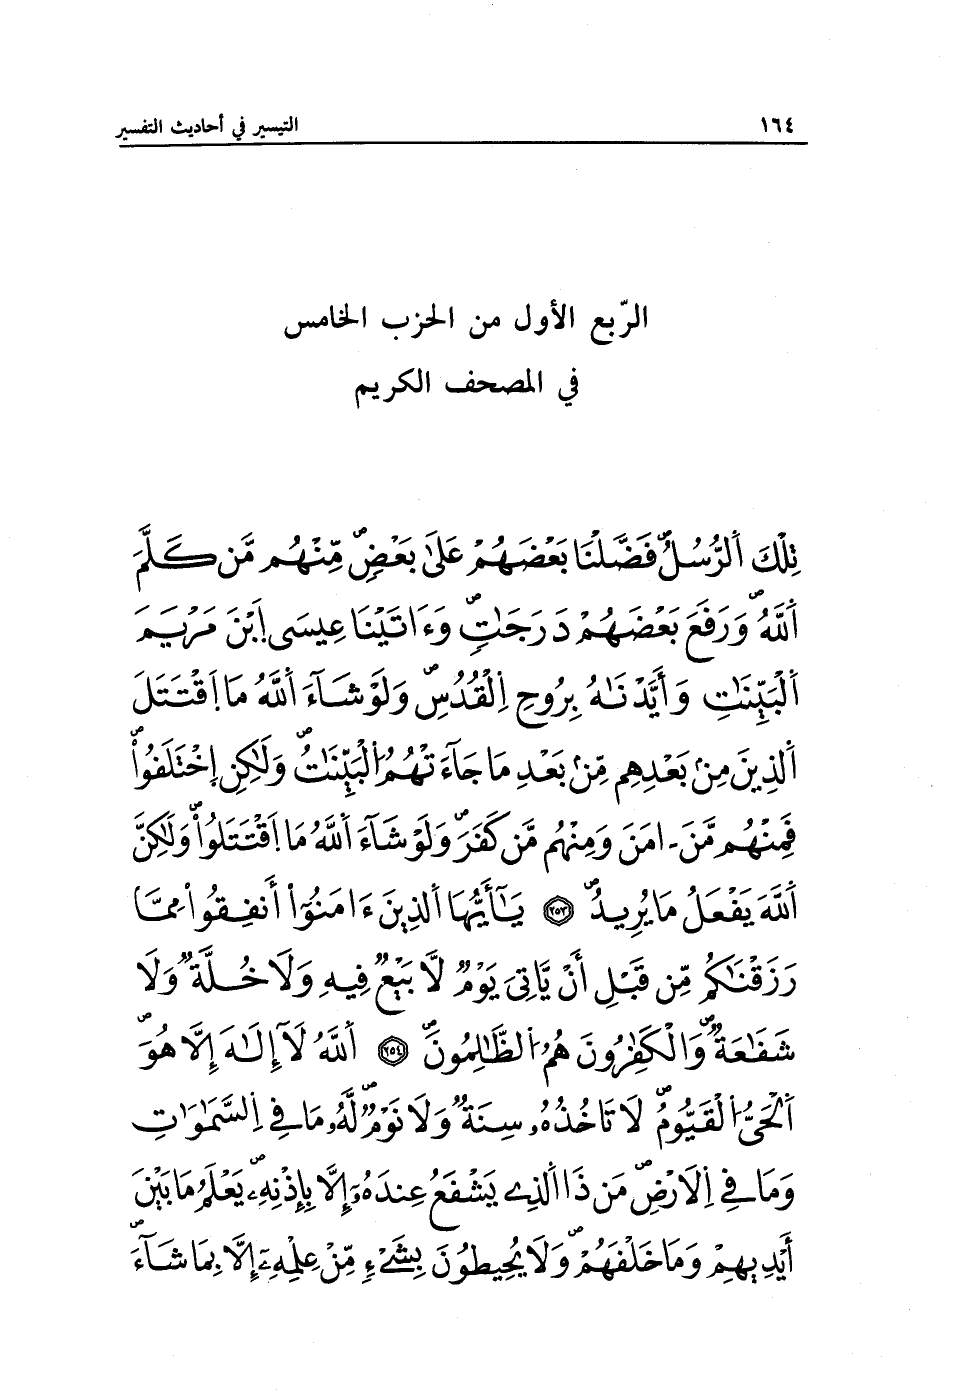 ١٦٤
التيسير في أحاديث التفسير
الرّبع الأول من الحزب الخامس
في المصحف الكريم
تِلْكَ اَلرُّسُلُ فَضَّلْنَا بَعْضَهُمْ عَلَىٰ بَعْضٍ مِّنْهُم مَّن كَلَّمَ
اَللَّهُ وَرَفَعَ بَعْضَهُمْ دَرَجَٰتٍ وَءَاتَيْنَا عِيسَى اَبْنَ مَرْيَمَ
اَلْبَيِّنَٰتِ وَأَيَّدْنَٰهُ بِرُوحِ اِلْقُدُسِ وَلَوْ شَآءَ اَللَّهُ مَا اَقْتَتَلَ
اَلذِينَ مِنۢ بَعْدِهِم مِّنۢ بَعْدِ مَا جَآءَتْهُمُ اُلْبَيِّنَٰتُ وَلَٰكِنِ اِخْتَلَفُواْ
فَمِنْهُم مَّنَ ـ امَنَ وَمِنْهُم مَّن كَفَرَ وَلَوْ شَآءَ اَللَّهُ مَا اَقْتَتَلُواْ وَلَٰكِنَّ
اَللَّهَ يَفْعَلُ مَا يُرِيدُ ٢٥٣ يَٰٓأَيُّهَا اَلذِينَ ءَامَنُوٓاْ أَنفِقُواْ مِمَّا
رَزَقْنَٰكُم مِّن قَبْلِ أَنْ يَّاتِىَ يَوْمٌ لَّا بَيْعٌ فِيهِ وَلَا خُلَّةٌ وَلَا
شَفَٰعَةٌ وَالْكَٰفِرُونَ هُمُ اُلظَّٰلِمُونَ ٢٥٤ اَللَّهُ لَآ إِلَٰهَ إِلَّا هُوَ
اَلْحَىُّ اُلْقَيُّومُ لَا تَاخُذُهُۥ سِنَةٌ وَلَا نَوْمٌ لَّهُۥ مَا فِي اِلسَّمَٰوَٰتِ
وَمَا فِي اِلَارْضِ مَن ذَا اَلذِے يَشْفَعُ عِندَهُۥٓ إِلَّا بِإِذْنِهِۦ يَعْلَمُ مَا بَيْنَ
أَيْدِيهِمْ وَمَا خَلْفَهُمْ وَلَا يُحِيطُونَ بِشَےْءٍ مِّنْ عِلْمِهِۦٓ إِلَّا بِمَا شَآءَ